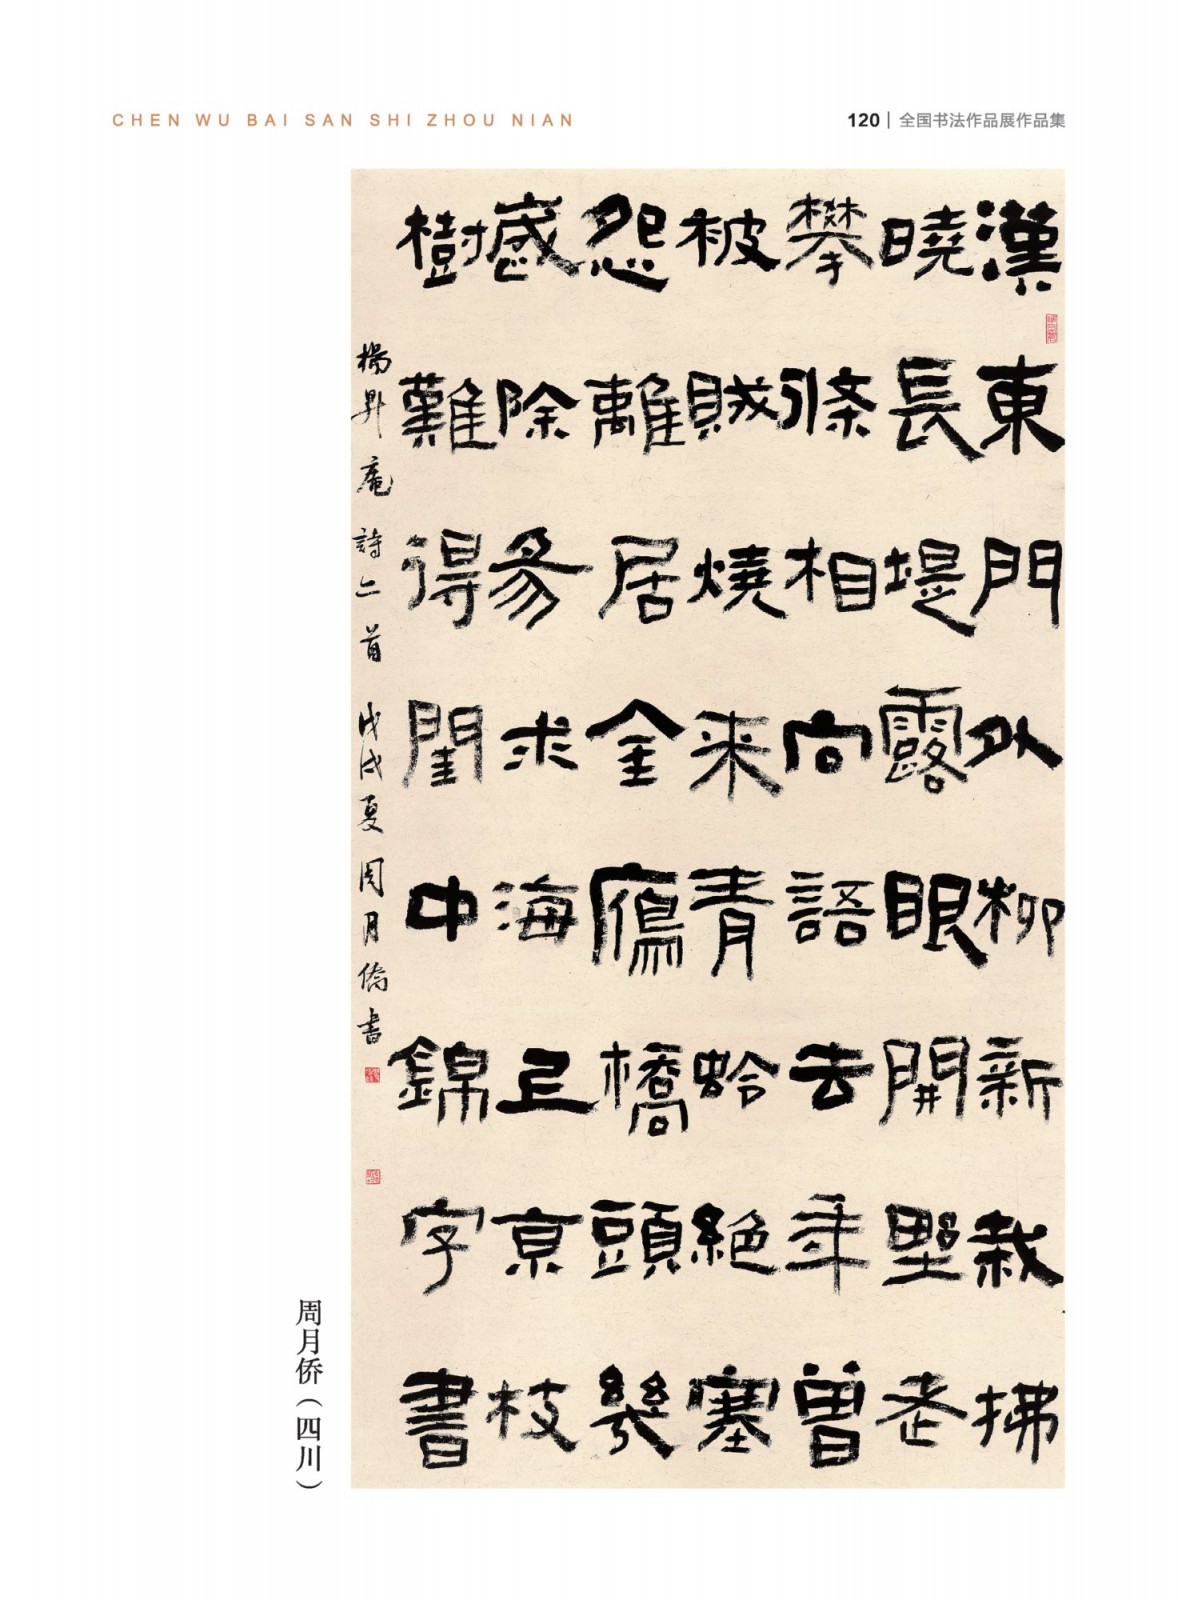 CHEN WU BAI SAN SHI ZHOU NIAN
120 | 全国书法作品展作品集
漢東門外柳新栽拂
曉長堤露眼開野老
攀條相向語去年曾
被賊燒来青蛉絕塞
怨離居金鴈橋頭幾
感除易求海上京枝
樹難得閨中錦字書
楊昇庵詩二首 戊戌夏周月僑書
周月侨（四川）